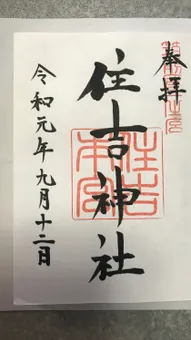 奉拝
住吉神社
住吉本宮
令和元年九月十二日